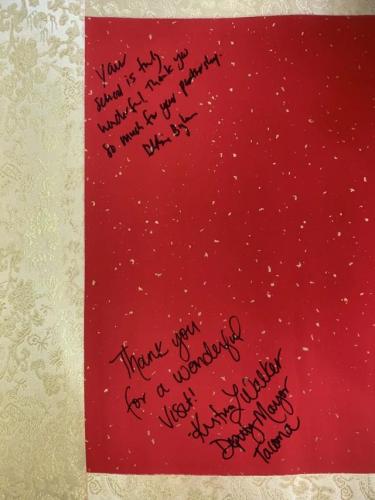 Your
school is truly
wonderful. Thank you
so much for your partnership.
Thank you
for a wonderful
Visit!
Kristina Walker
Deputy Mayor
Tacoma